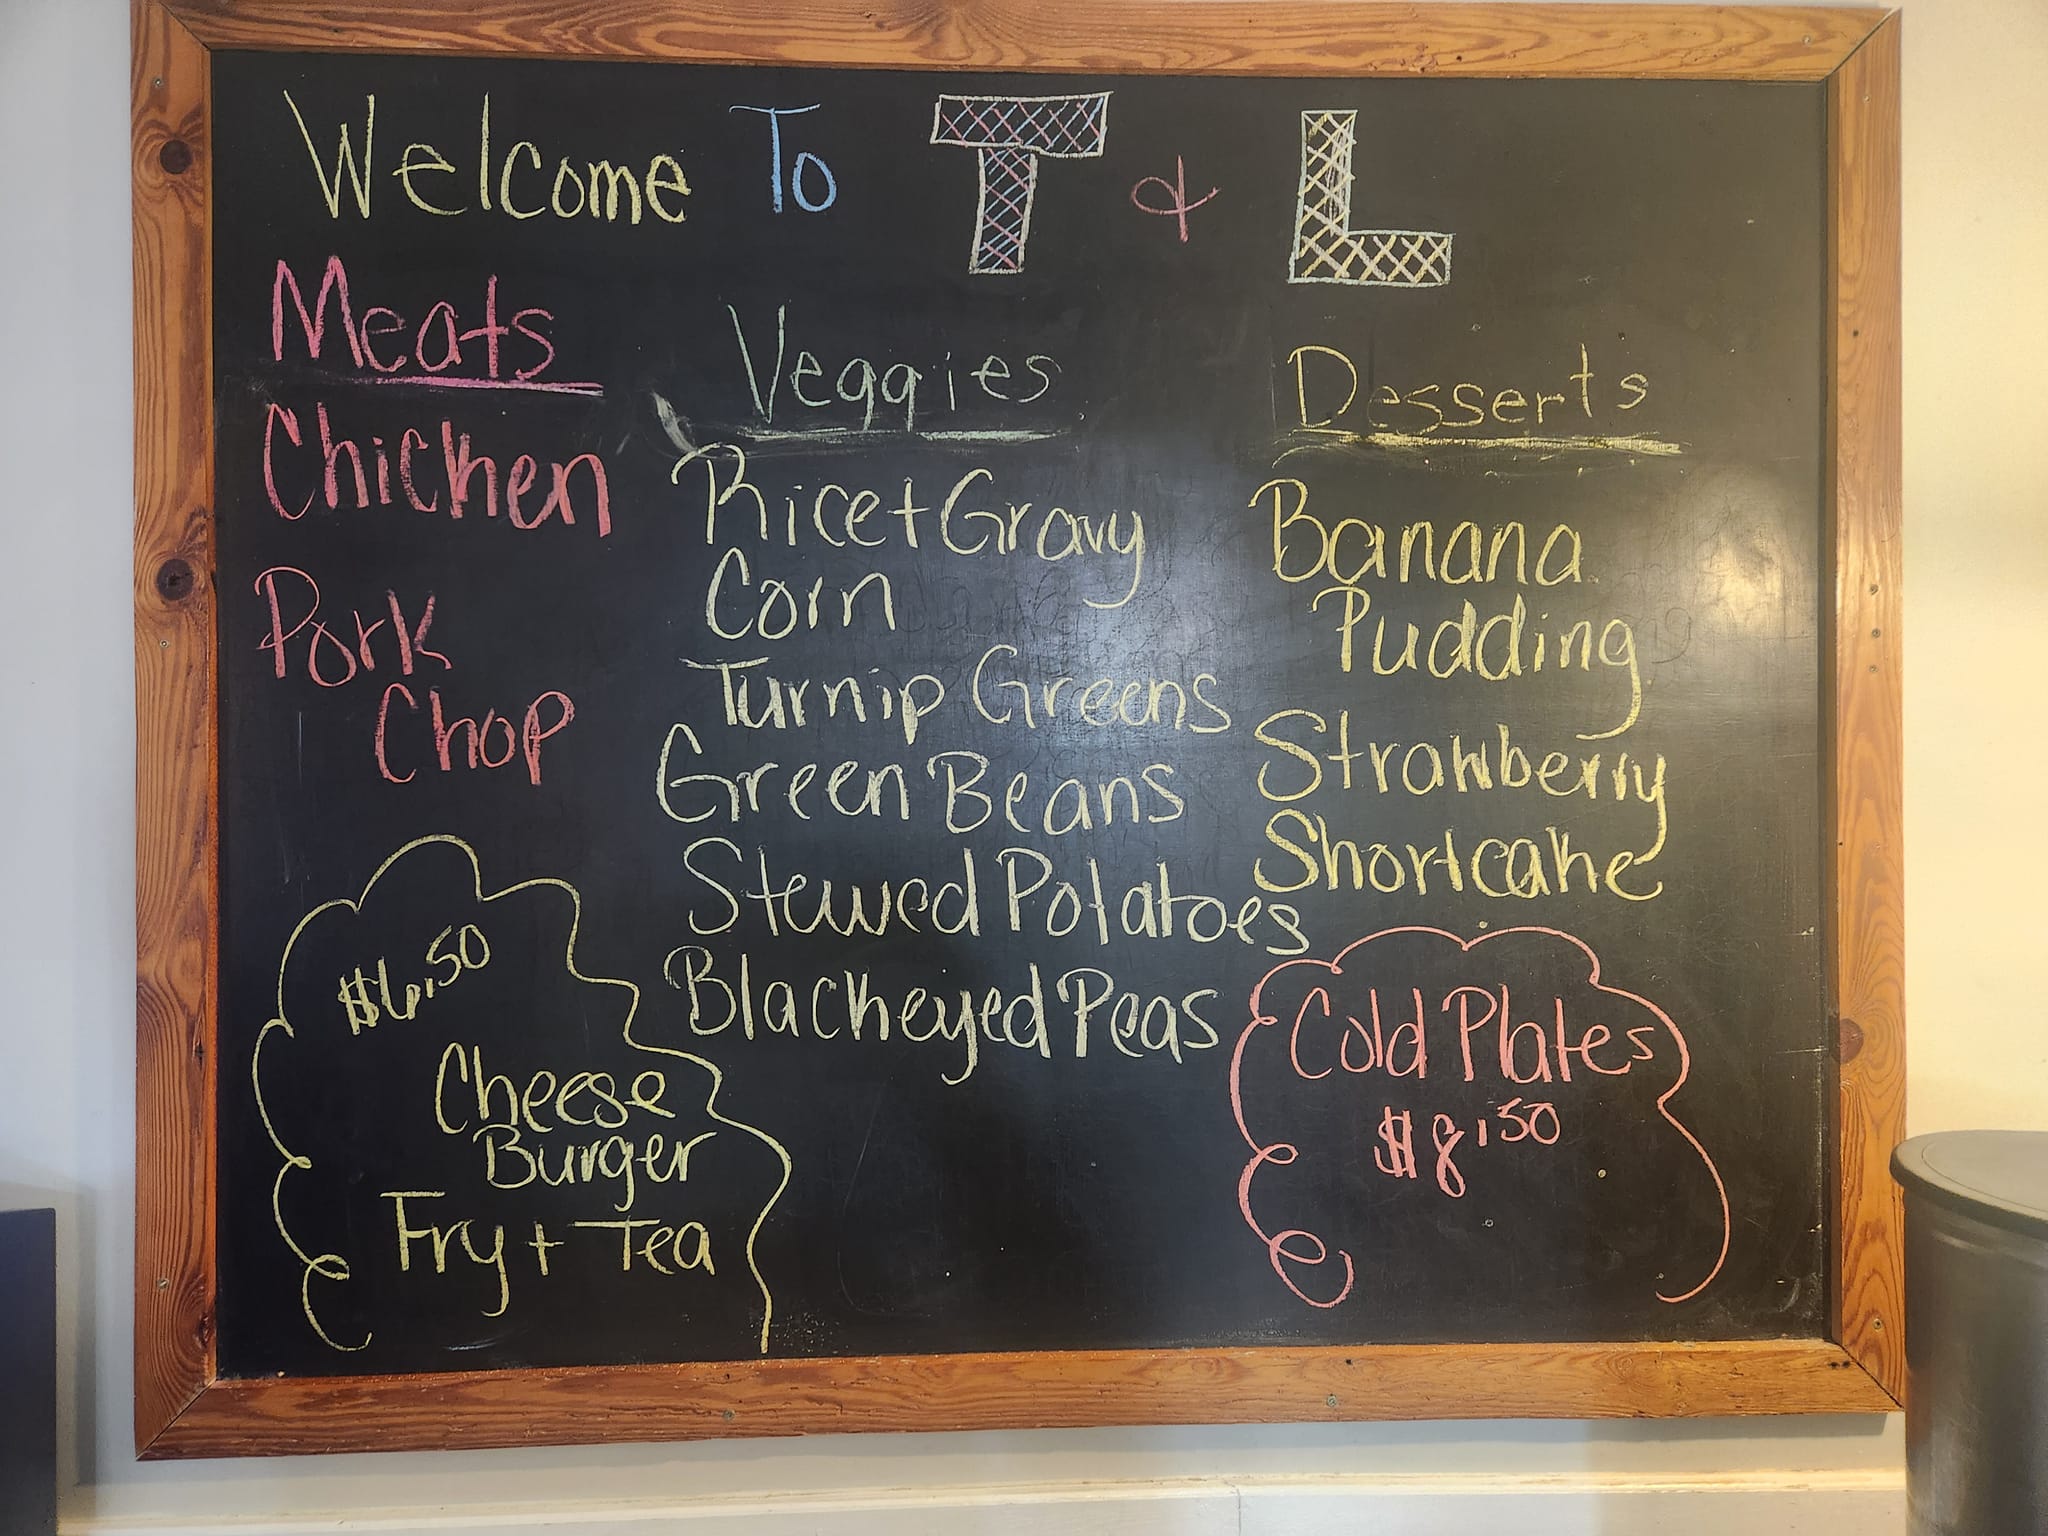 Welcome To T & L
Meats
Chicken
Pork
Chop
Veggies
Rice + Gravy
Corn
Turnip Greens
Green Beans
Stewed Potatoes
Blackeyed Peas
Desserts
Banana
Pudding
Strawberry
Shortcake
$6.50
Cheese
Burger
Fry + Tea
Cold Plates
$8.50